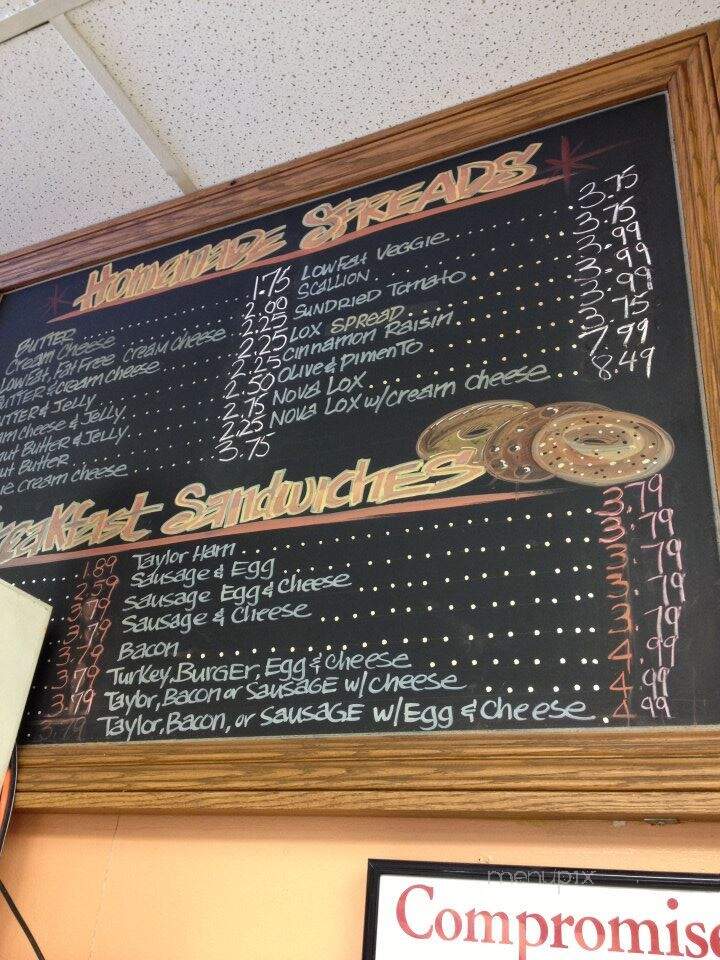 Homemade Spreads
BUTTER 1.75
Cream Cheese 2.00
LowFat, Fat Free Cream cheese 2.25
BUTTER & Cream cheese 2.25
BUTTER & Jelly 2.25
Cheese & Jelly 2.50
Butter & Jelly 2.75
Butter 2.25
cream cheese 3.75
LowFat Veggie 3.75
SCALLION 3.75
SunDRIED Tomato 3.99
LOX SPREAD 3.99
Cinnamon Raisin 3.99
Olive & Pimento 3.75
Nova Lox 7.99
Nova Lox w/cream cheese 8.49
Breakfast Sandwiches
1.89
2.59
3.79
3.79
3.79
3.79
3.79
3.79
Taylor Ham 3.79
Sausage & Egg 3.79
Sausage Egg & Cheese 3.79
Sausage & Cheese 3.79
Bacon 3.79
Turkey, Burger, Egg & Cheese 4.99
Taylor, Bacon or Sausage w/Cheese 4.99
Taylor, Bacon, or Sausage w/Egg & Cheese 4.99
menupix
Compromise